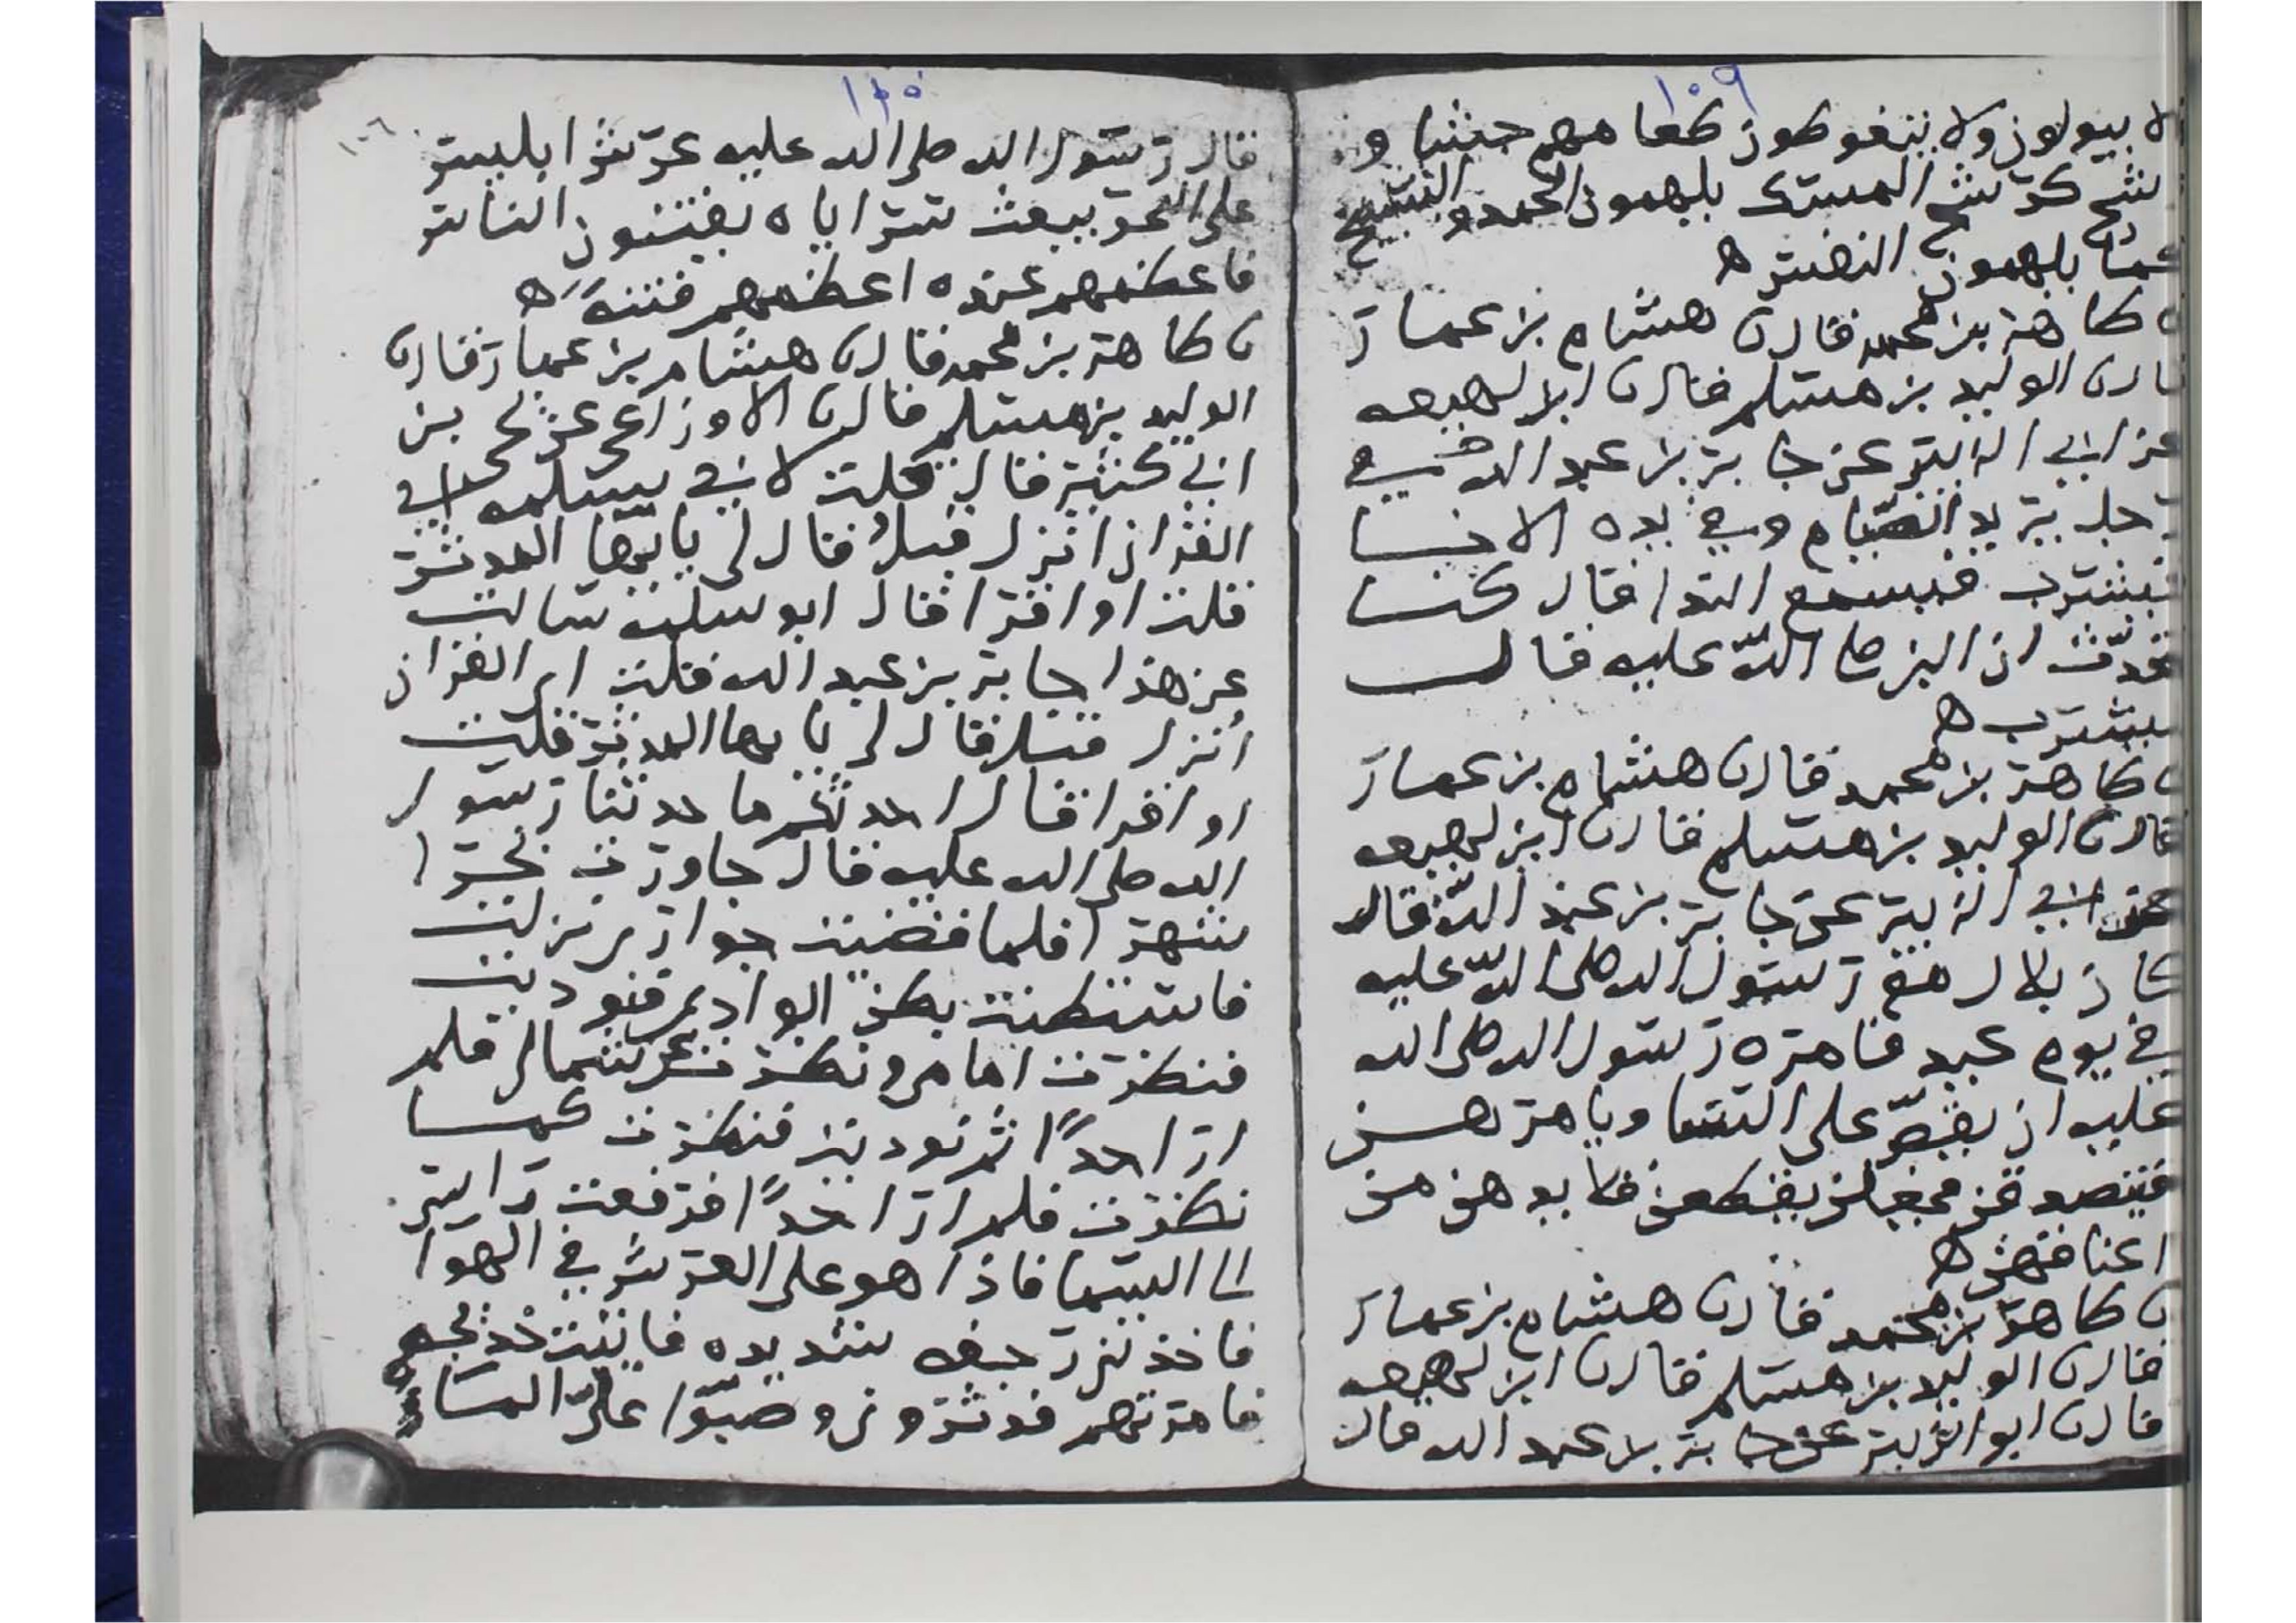 ١٠٩
لا يبولون ولا يتغوطون طعامهم جشا و
رشح كرشح المسك يلهمون الحمد والتسبيح
كما يلهمون النفس ه
ن طاهر بن محمد قال ن هشام بن عمار
قال ن الوليد بن مسلم قال ن ابن لهيعه
عن ابي الزبير عن جابر بن عبد الله في
رجل يريد الصيام وفي يده الانا
فيشرب فيسمع الندا قال كنا
نحدث ان النبي صلى الله عليه قال
يشرب ه
ن طاهر بن محمد قال ن هشام بن عمار
قال ن الوليد بن مسلم قال ن ابن لهيعه
عن ابي الزبير عن جابر بن عبد الله قال
كان بلال مع رسول الله صلى الله عليه
في يوم عيد فامره رسول الله صلى الله
عليه ان يقص على النسا ويامرهن
فيتصدقن فجعلن يقطعن قلايدهن من
اعناقهن ه
ن طاهر بن محمد قال ن هشام بن عمار
قال ن الوليد بن مسلم قال ن ابن لهيعه
قال ن ابو الزبير عن جابر بن عبد الله قال
١١٠
قال رسول الله صلى الله عليه عرش ابليس
على البحر يبعث سراياه يفتنون الناس
فاعظمهم عنده اعظمهم فتنة ه
ن طاهر بن محمد قال ن هشام بن عمار قال ن
الوليد بن مسلم قال ن الاوزاعي عن يحيى بن
ابي كثير قال قلت لابي سلمه اي
القران انزل قبل قال لي يايها المدثر
قلت او اقرا قال ابو سلمه سالت
عن هذا جابر بن عبد الله قلت اي القران
أنزل قبل قال لي يايها المدثر قلت
او اقرا قال احدثكم ما حدثنا رسول
الله صلى الله عليه قال جاورت بحرا
شهرا فلما قضيت جواري نزلت
فاستبطنت بطن الوادي فنوديت
فنظرت امامي ونظرت عن شمالي فلم
ار احدًا ثم نوديت فنظرت كما
نظرت فلم ار احدًا فرفعت راسي
الى السما فاذا هو على العرش في الهوا
فاخذتني رجفه شديده فاتيت خديجه
فامرتهم فدثروني وصبوا علي الما